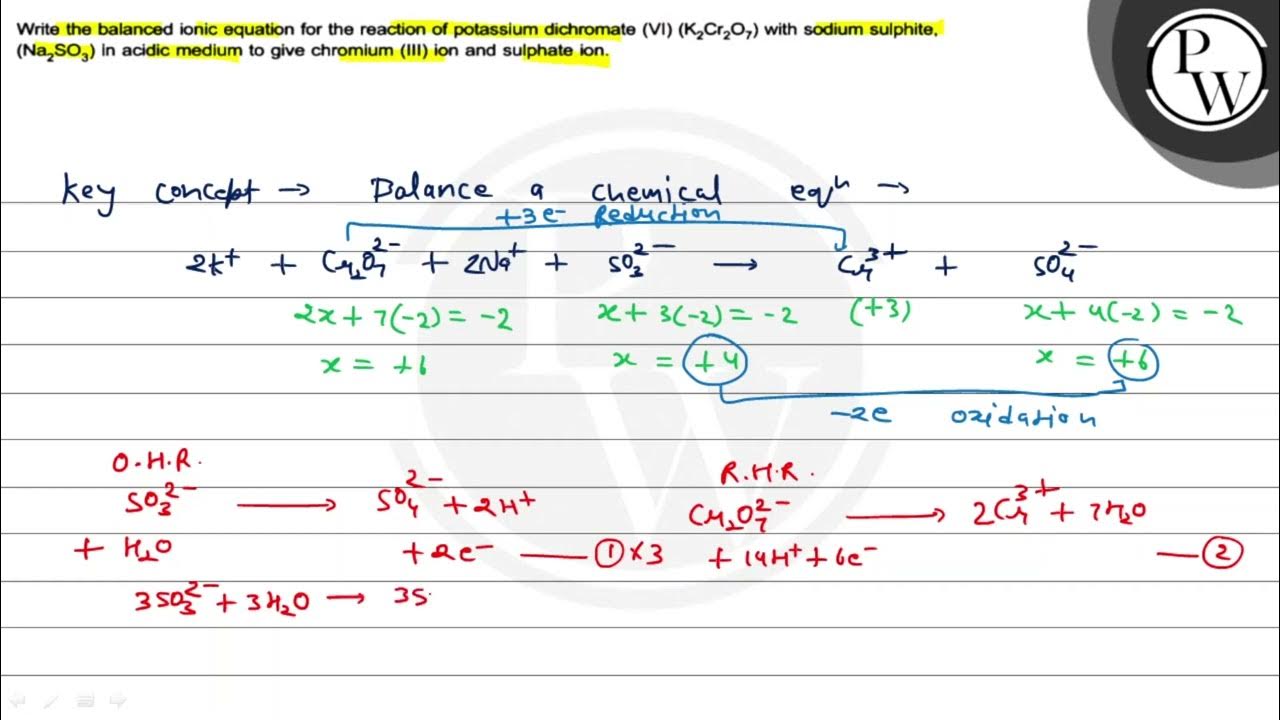 Write the balanced ionic equation for the reaction of potassium dichromate (VI) (K₂Cr₂O₇) with sodium sulphite,
(Na₂SO₃) in acidic medium to give chromium (III) ion and sulphate ion.
P
W
Key concept → Balance a chemical eqⁿ →
+3e⁻ Reduction
2K⁺ + Cr₂O₇²⁻ + 2Na⁺ + SO₃²⁻ → Cr³⁺ + SO₄²⁻
2x + 7(-2) = -2 x + 3(-2) = -2 (+3) x + 4(-2) = -2
x = +6 x = +4 x = +6
-2e oxidation
O.H.R. R.H.R.
SO₃²⁻ → SO₄²⁻ + 2H⁺ Cr₂O₇²⁻ → 2Cr³⁺ + 7H₂O
+ H₂O + 2e⁻ — ① × 3 + 14H⁺ + 6e⁻ — ②
3SO₃²⁻ + 3H₂O → 3S